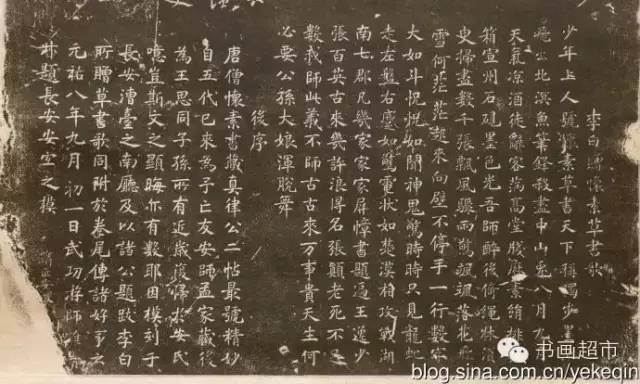 李白贈懷素草書歌
少年上人號懷素草書天下稱獨步墨
出北溟魚筆鋒殺盡中山兔八月九
天氣涼酒徒辭客滿高堂牋麻素絹排
箱宣州石硯墨色光吾師醉後倚繩牀須
臾掃盡數千張飄風驟雨驚颯颯落花飛
雪何茫茫起來向壁不停手一行數字
大如斗恍恍如聞神鬼驚時時只見龍蛇
走左盤右蹙如驚電狀如楚漢相攻戰湖
南七郡凡幾家家家屏幛書題遍王逸少
張百英古來幾許浪得名張顛老死不足
數我師此義不師古古來万事貴天生何
必要公孫大娘渾脫舞
後序
唐僧懷素書藏真律公二帖最號精妙
自五代已來為予亡友安師孟家藏後
為王思同子孫所有近歲復歸於安氏
噫豈斯文之顯晦亦有數耶因模刻于
長安漕臺之南廳及以諸公題跋李白
所贈草書歌同附於卷尾傳諸好事之
元祐八年九月初一日武功游師雄景
叔題長安安宜之模
书画超市
blog.sina.com.cn/yekeqin